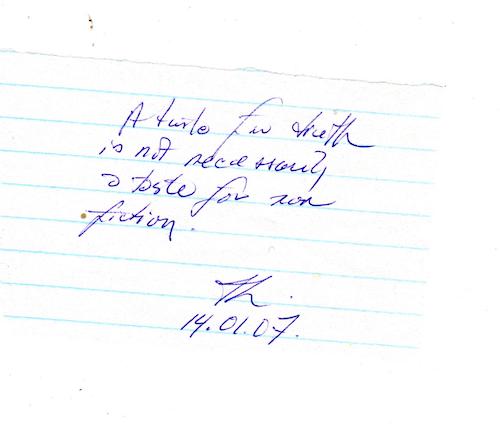 A taste for truth
is not necessarily
a taste for non
fiction.
Th.
14.01.07.